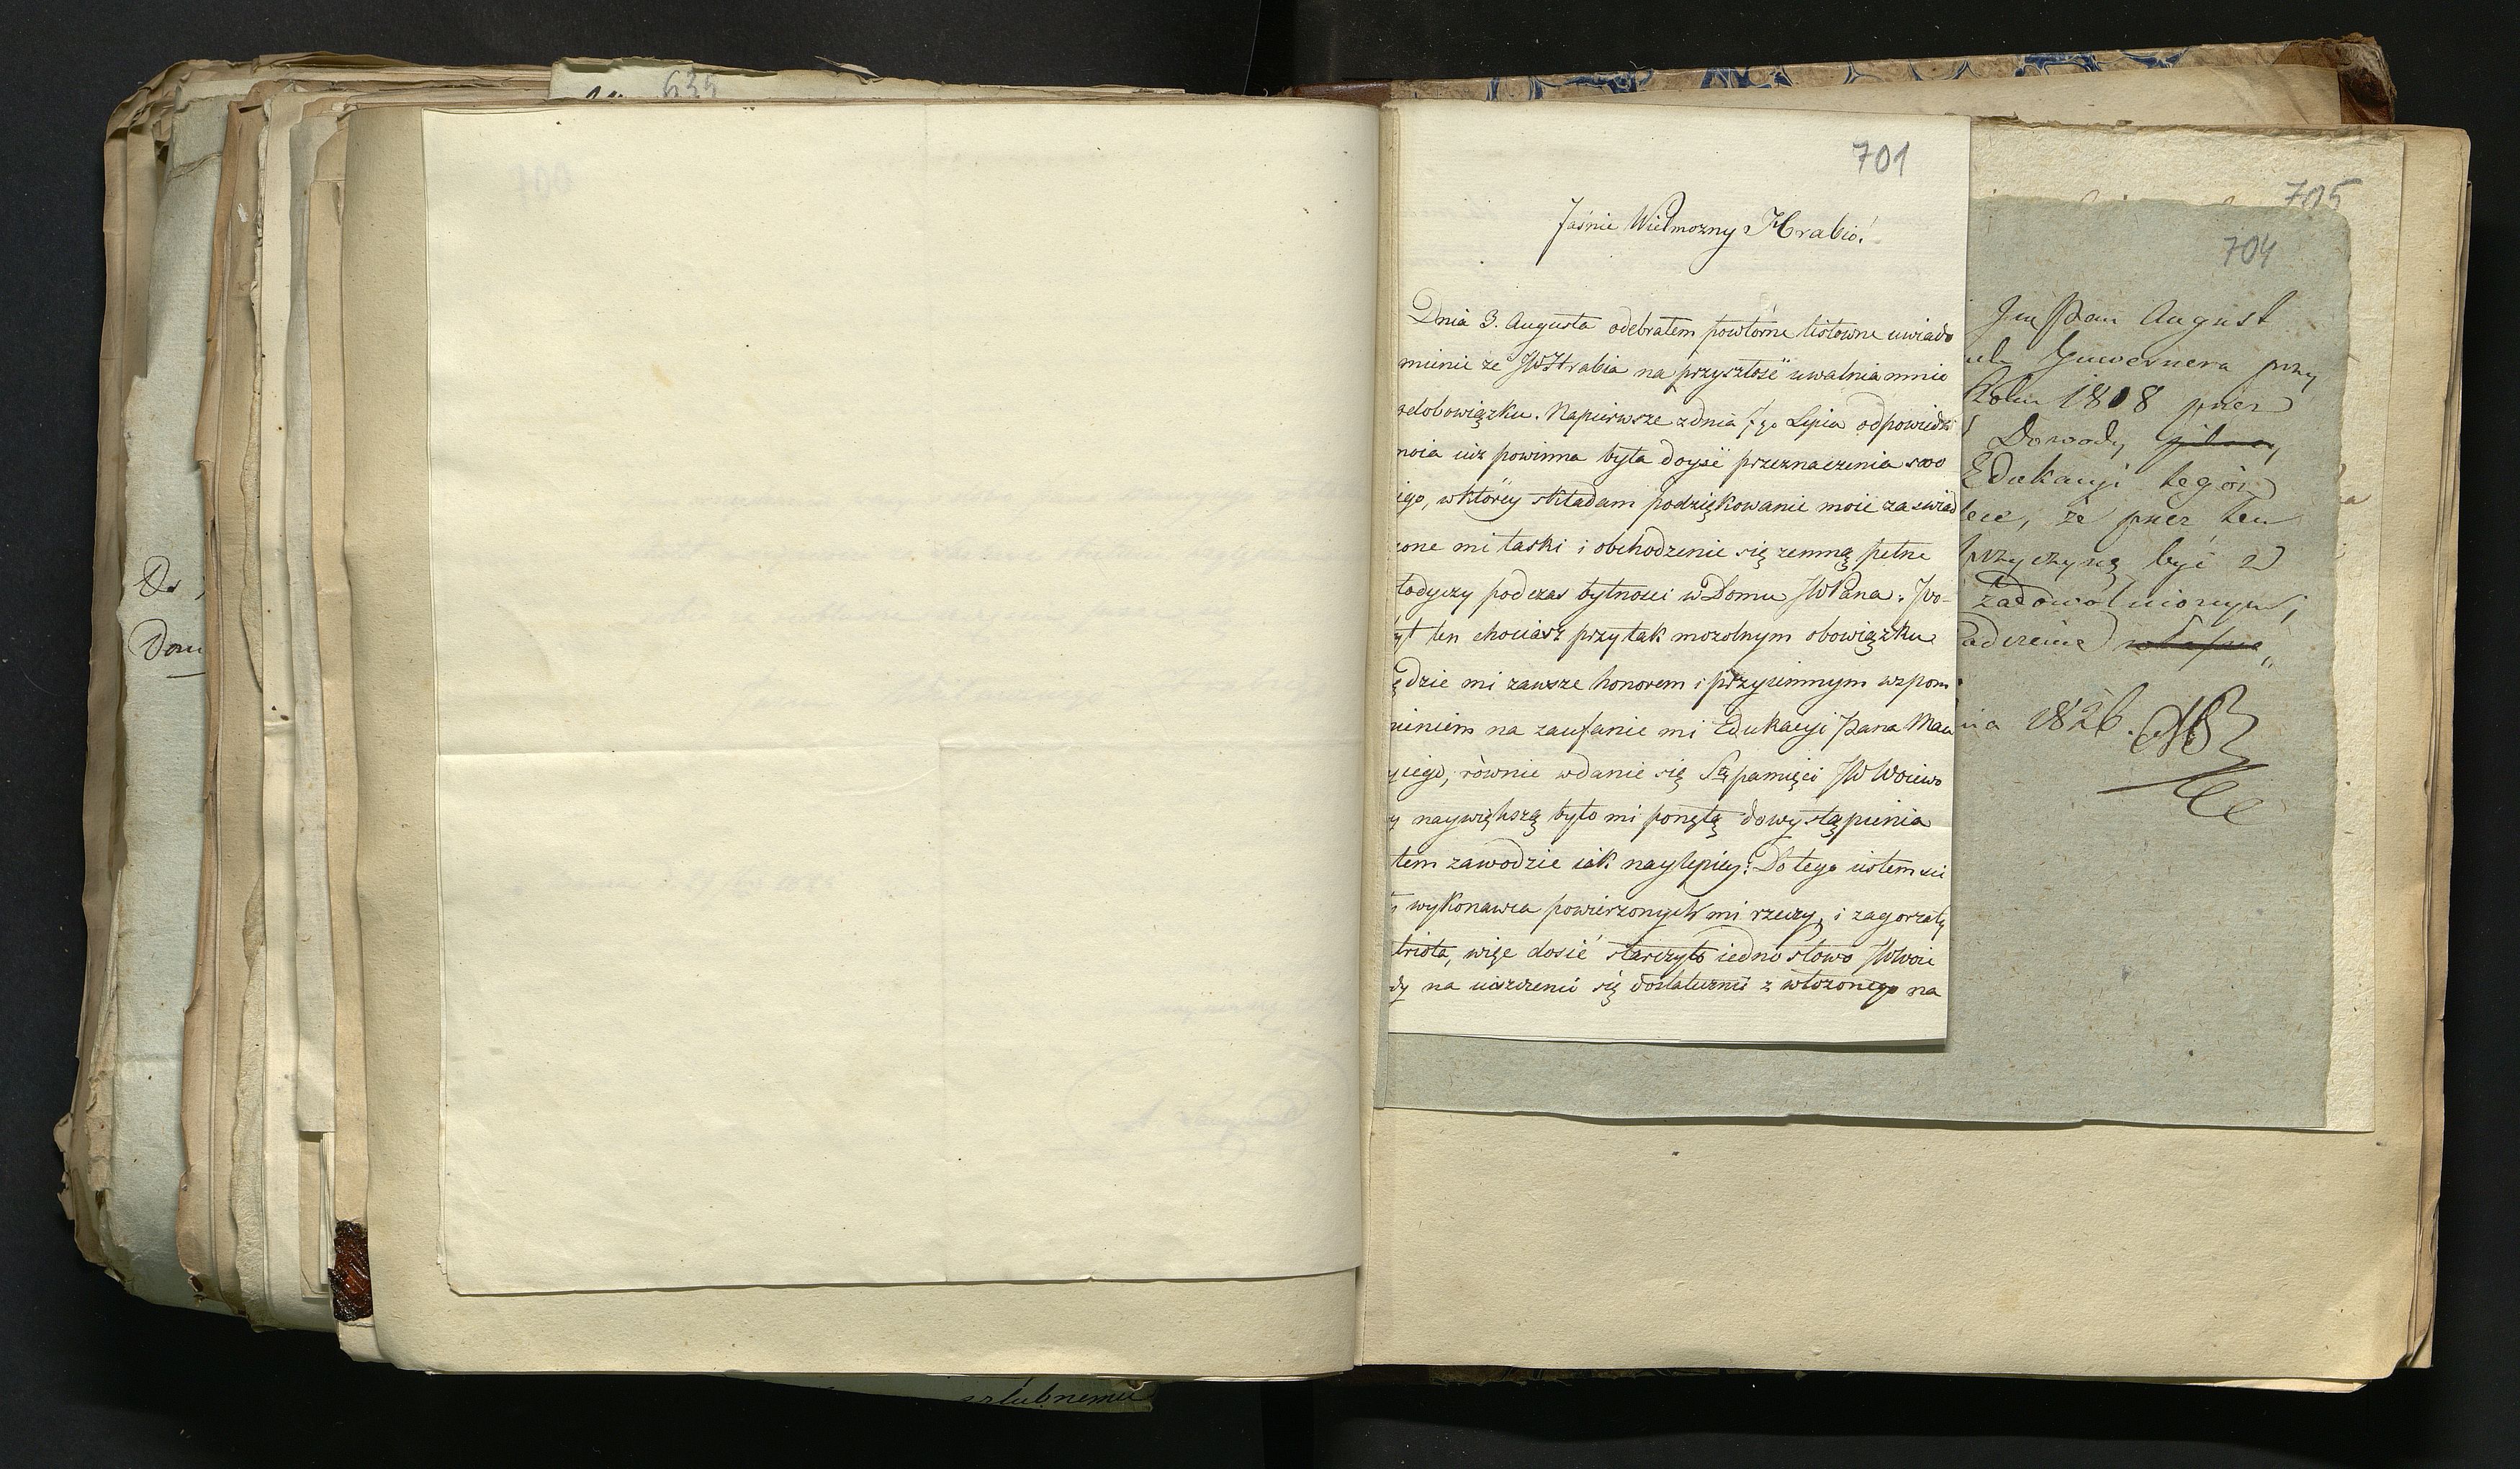 635
Do
Dom
szlubnemu
701
Jaśnie Wielmożny Hrabio!
Dnia 3. Augusta odebrałem powtórne listowne uwiado
mienie że JWHrabia na przyszłość uwalnia mnie
odobowiązku. Napierwsze zdnia 7go Lipca odpowiedź
moia iuż powinna była doyść przeznaczenia swo
iego, wktórey składam podziękowanie moie za świad
zone mi łaski i obchodzenie się zemną pełne
łodyczy podczas bytności w Domu JWPana. Po-
yt ten chociasz przytak mozolnym obowiązku
ędzie mi zawsze honorem i przyiemnym wspom
nieniem na zaufanie mi Edukacyi Pana Mau
ycego, równie wdanie się Sę pamięci JW Woiewo
y naywiększą było mi ponętą dowystąpienia
tem zawodzie iak naylepiey: Do tego iistem
wykonawca powierzonych mi rzeczy, i zagorzały
triota, więc dosić starczyło iedno słowo JWWoie
dy na uiszczenie się dostatecznie z włożonego na
705
704
JmPan August
Guwernera przy
Roku 1808 przez
Dowody
Edukacyi tegoż
lece, że przez ten
przyczyną być
zadowolnionym;
adczenie
nia 1826.